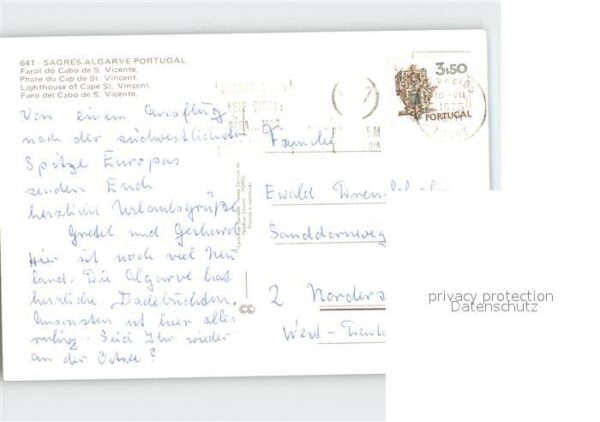 641 - SAGRES-ALGARVE-PORTUGAL
Farol do Cabo de S. Vicente.
Phare du Cap de St. Vincent.
Lighthouse of Cape St. Vincent.
Faro del Cabo de S. Vicente.
3$50
PORTUGAL
Von einem Ausflug
nach der südwestlichsten
Spitze Europas
senden Euch
herzliche Urlaubsgrüße
Gretel und Gerhard
Hier ist noch viel Neu
land. Die Algarve hat
herrliche Badebuchten.
Ansonsten ist hier alles
ruhig. Seid Ihr wieder
an der Ostsee?
Familie
Ewald
Sanddornweg
2 Norders
West-Deuts
privacy protection
Datenschutz